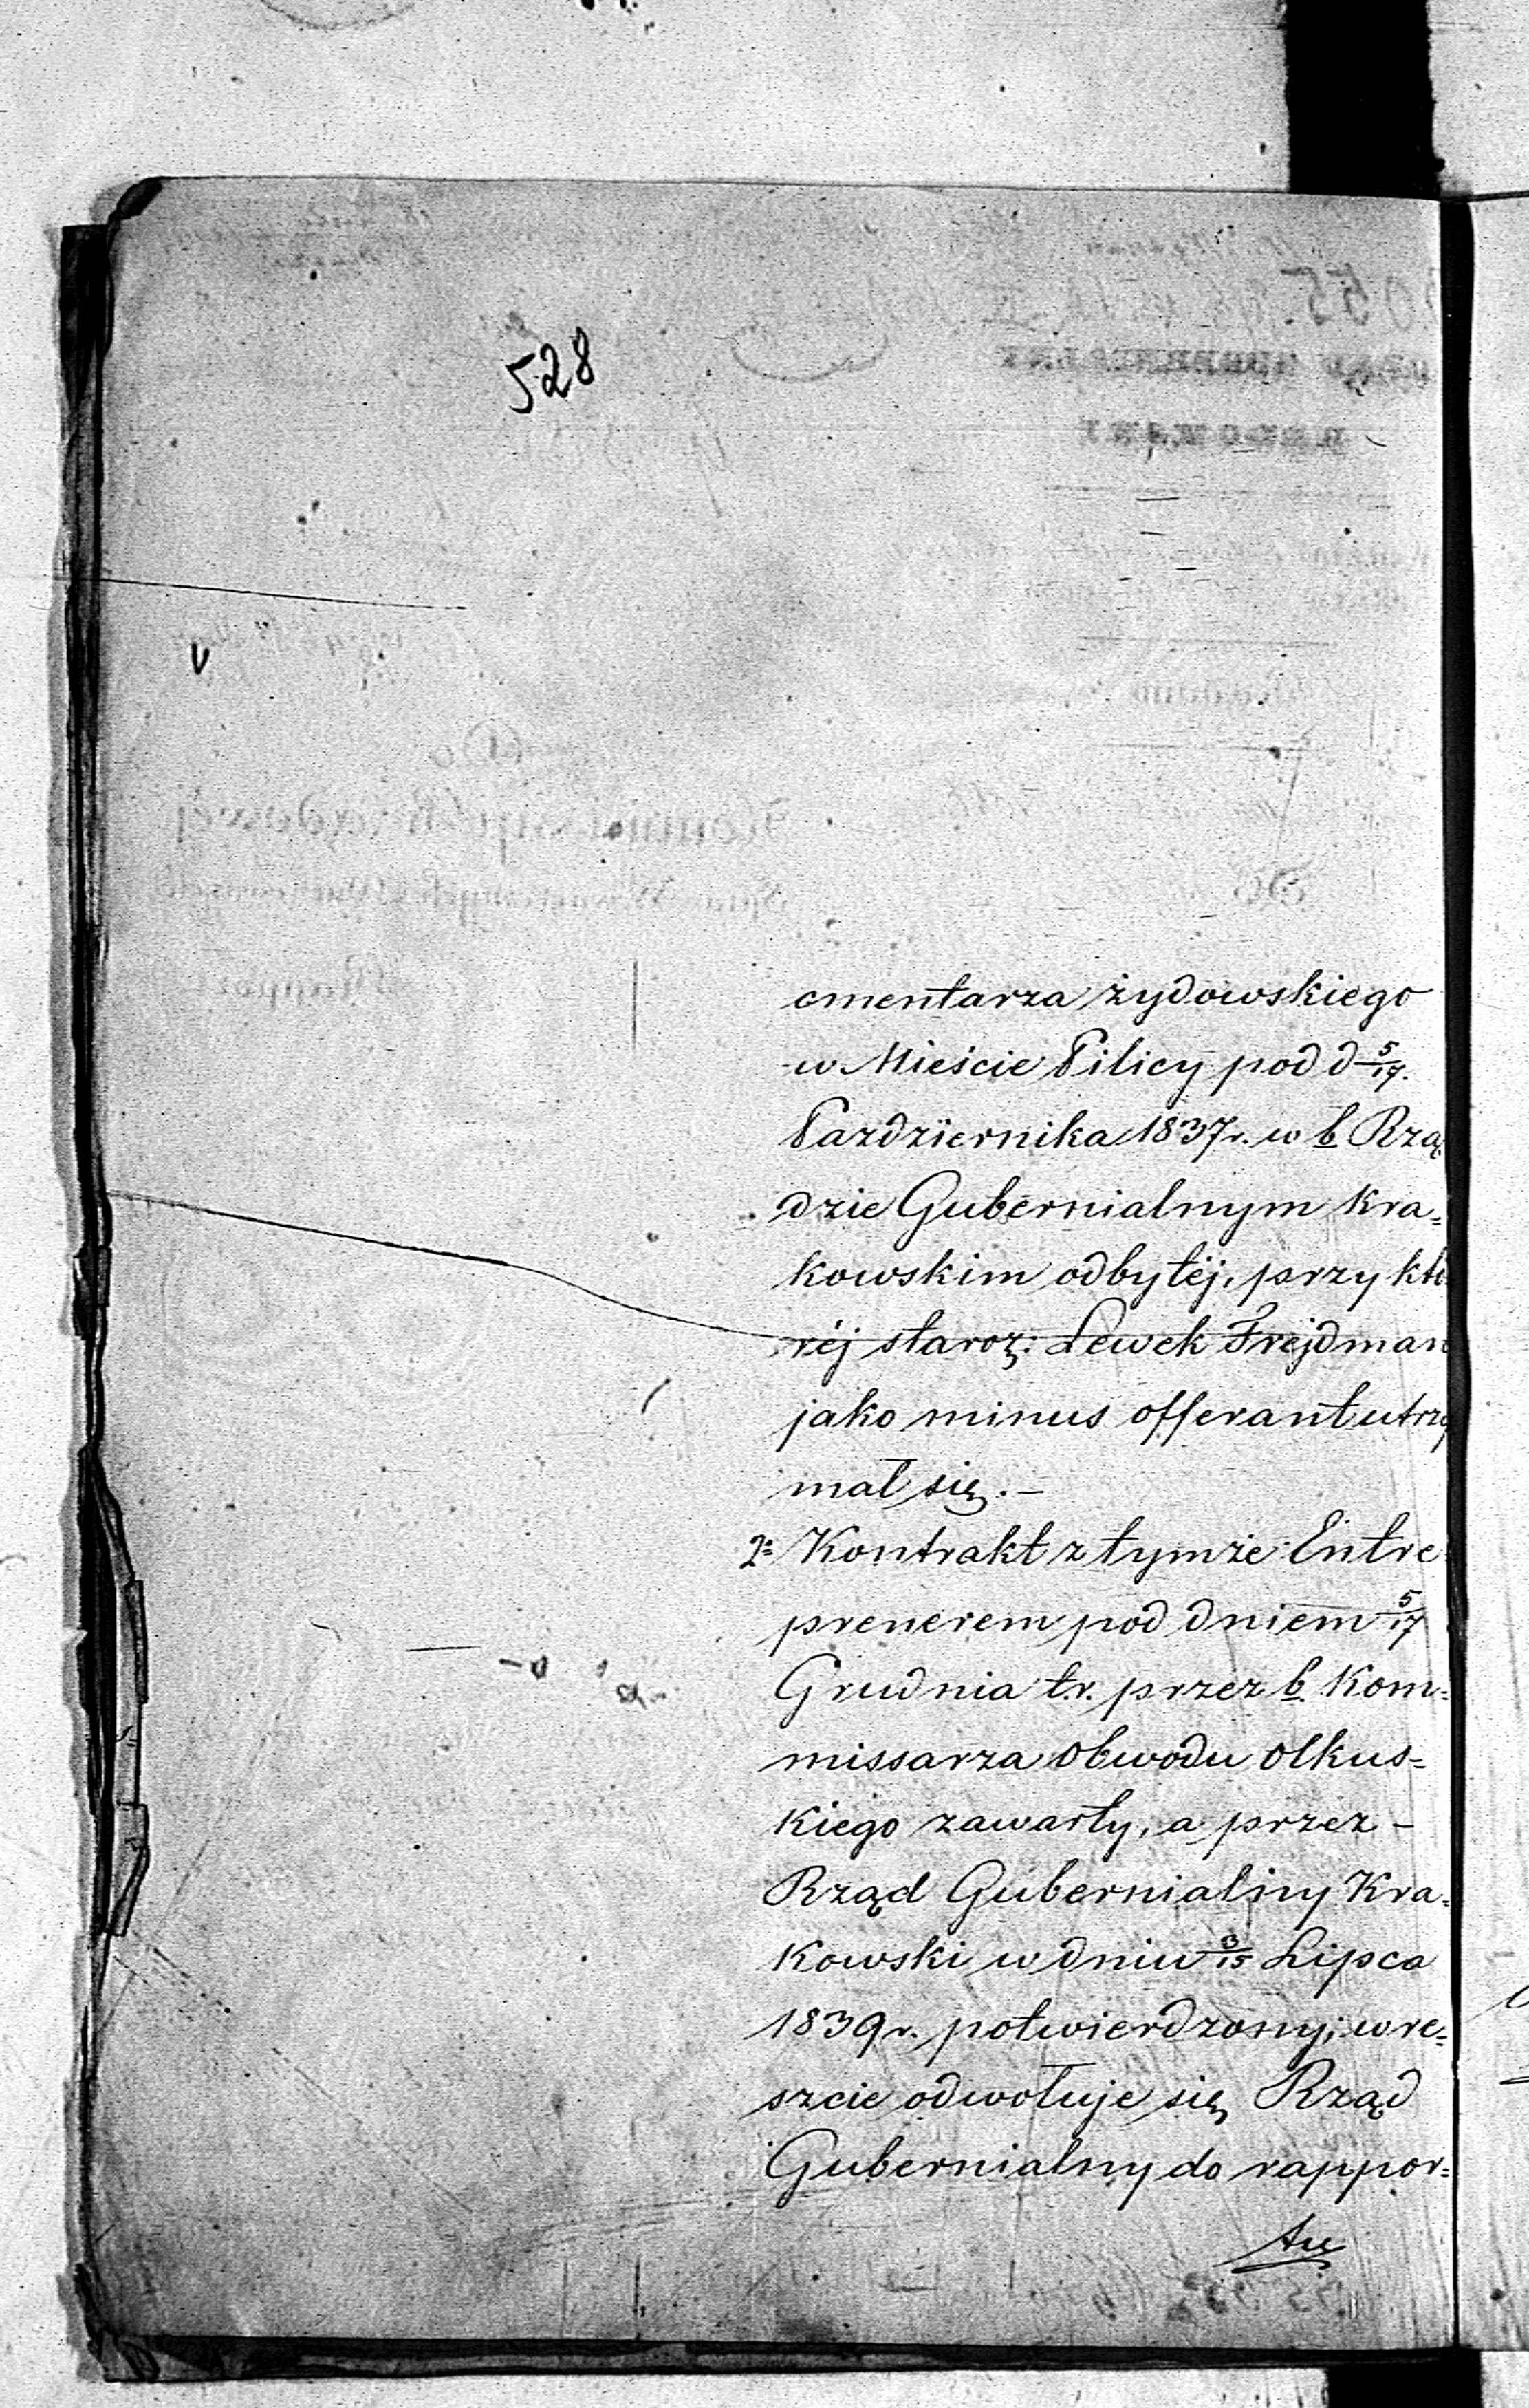 528
cmentarza żydowskiego
w Mieście Pilicy pod d 5/17.
Pazdziernika 1837r. w b Rzą
dzie Gubernialnym Kra=
kowskim odbytéj, przy któ
réj staroz: Lewek Frejdman
jako minus offerant utrzy
mał się. –
2° Kontrakt z tymże Entre
prenerem pod dniem 5/17
Grudnia t.r. przez b. Kom=
missarza Obwodu Olkus=
kiego zawarty, a przez –
Rząd Gubernialny Kra=
kowski w dniu 3/15 Lipca
1839r. potwierdzony; wre=
szcie odwołuje się Rząd
Gubernialny do rappor=
tu